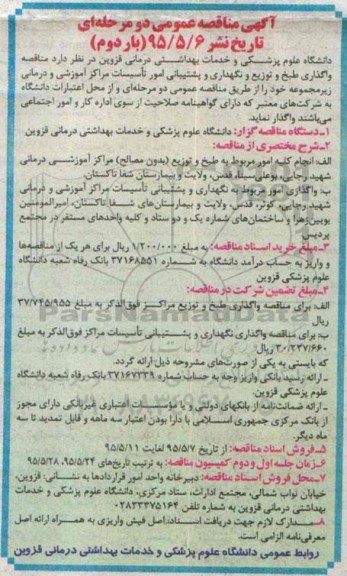 آگهی مناقصه عمومی دو مرحله‌ای
تاریخ نشر ۹۵/۵/۶ (بار دوم)
دانشگاه علوم پزشکی و خدمات بهداشتی درمانی قزوین در نظر دارد مناقصه
واگذاری طبخ و توزیع و نگهداری و پشتیبانی امور تأسیسات مراکز آموزشی و درمانی
زیرمجموعه خود را از طریق مناقصه عمومی دو مرحله‌ای و از محل اعتبارات دانشگاه
به شرکت‌های معتبر که دارای گواهینامه صلاحیت از سوی اداره کار و امور اجتماعی
می‌باشند واگذار نماید.
۱-دستگاه مناقصه گزار: دانشگاه علوم پزشکی و خدمات بهداشتی درمانی قزوین
۲-شرح مختصری از مناقصه:
الف: انجام کلیه امور مربوط به طبخ و توزیع (بدون مصالح) مراکز آموزشی درمانی
شهید رجایی، بوعلی سینا، قدس، ولایت و بیمارستان شفا تاکستان.
ب: واگذاری امور مربوط به نگهداری و پشتیبانی تأسیسات مراکز آموزشی و درمانی
شهید رجایی، کوثر، قدس، ولایت و بیمارستان‌های شفا تاکستان، امیرالمومنین
بویین‌زهرا و ساختمان‌های شماره یک و دو ستاد و کلیه واحدهای مستقر در مجتمع
پردیس
۳-مبلغ خرید اسناد مناقصه: به مبلغ ۱/۲۰۰/۰۰۰ ریال برای هر یک از مناقصه‌ها
و واریز به حساب درآمد دانشگاه به شماره ۳۷۱۶۸۵۵۱ بانک رفاه شعبه دانشگاه
علوم پزشکی قزوین
۴-مبلغ تضمین شرکت در مناقصه:
الف: برای مناقصه واگذاری طبخ و توزیع مراکز فوق‌الذکر به مبلغ ۳۷/۷۴۵/۹۵۵
ریال
ب: برای مناقصه واگذاری نگهداری و پشتیبانی تأسیسات مراکز فوق‌الذکر به مبلغ
۳۰/۲۳۷/۶۶۰ ریال
که بایستی به یکی از صورت‌های مشروحه ذیل ارائه گردد.
ـ ارائه رسید بانکی واریز وجه به حساب شماره ۳۷۱۶۷۲۳۹ بانک رفاه شعبه دانشگاه
علوم پزشکی قزوین
ـ ارائه ضمانت‌نامه از بانکهای دولتی و یا مؤسسات اعتباری غیربانکی دارای مجوز
از بانک مرکزی جمهوری اسلامی با دارا بودن اعتبار سه ماهه و قابل تمدید تا سه
ماه دیگر.
۵-فروش اسناد مناقصه: از تاریخ ۹۵/۵/۷ لغایت ۹۵/۵/۱۱
۶-زمان جلسه اول و دوم کمیسیون مناقصه: به ترتیب تاریخ‌های ۹۵/۵/۲۴، ۹۵/۵/۲۸
۷-محل فروش اسناد مناقصه: دبیرخانه واحد امور قراردادها به نشانی: قزوین،
خیابان نواب شمالی، مجتمع ادارات، ستاد مرکزی، دانشگاه علوم پزشکی و خدمات
بهداشتی درمانی قزوین به شماره تلفن ۰۲۸۳۳۳۷۵۱۶۴
۸-مدارک لازم جهت دریافت اسناد: اصل فیش واریزی به همراه ارائه اصل
معرفی‌نامه الزامی است.
روابط عمومی دانشگاه علوم پزشکی و خدمات بهداشتی درمانی قزوین
ParsNamadData